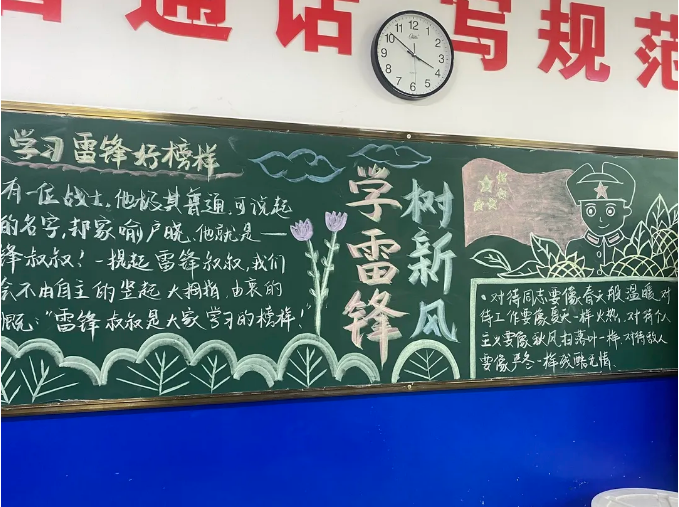 通话 写规范
12 1 2 3 4 5 6 7 8 9 10 11
学习雷锋好榜样
有一位战士,他极其普通,可说起
的名字,却家喻户晓,他就是一
锋叔叔!一提起雷锋叔叔,我们
会不由自主的竖起大拇指,由衷的
慨:“雷锋叔叔是大家学习的榜样!”
学雷锋
树新风
·对待同志要像春天般温暖,对
待工作要像夏天一样火热,对待个人
主义要像秋风扫落叶一样,对待敌人
要像严冬一样残酷无情.